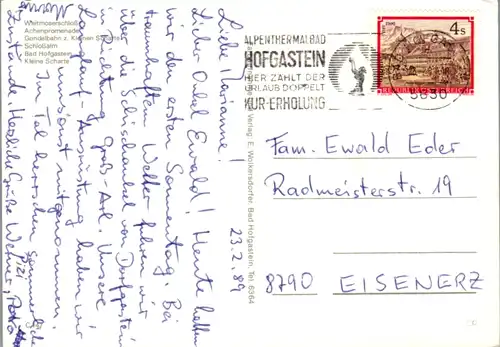 Weitmoserschlößl
Achenpromenade
Gondelbahn z. Kleinen Scharte
Schloßalm
Bad Hofgastein
Kleine Scharte
23.2.89
Liebe Marianne!
Lieber Onkel Ewald! Heute hatten
wir den ersten Sonnentag. Bei
traumhaftem Wetter fuhren wir
über die Schischaukel von Dorfgastein
in Richtung Groß-Arl. Unsere
Langlauf-Ausrüstung haben wir
umsonst mitgenommen.
Im Tal herrschen sommerliche
Zustände. Herzliche Grüße Werner,
Verlag E. Wolkersdorfer, Bad Hofgastein, Tel. 6364
ALPENTHERMALBAD
HOFGASTEIN
HIER ZÄHLT DER
URLAUB DOPPELT
KUR-ERHOLUNG
4s
REPUBLIK ÖSTERREICH
5630
Fam. Ewald Eder
Radmeisterstr. 19
8790 EISENERZ